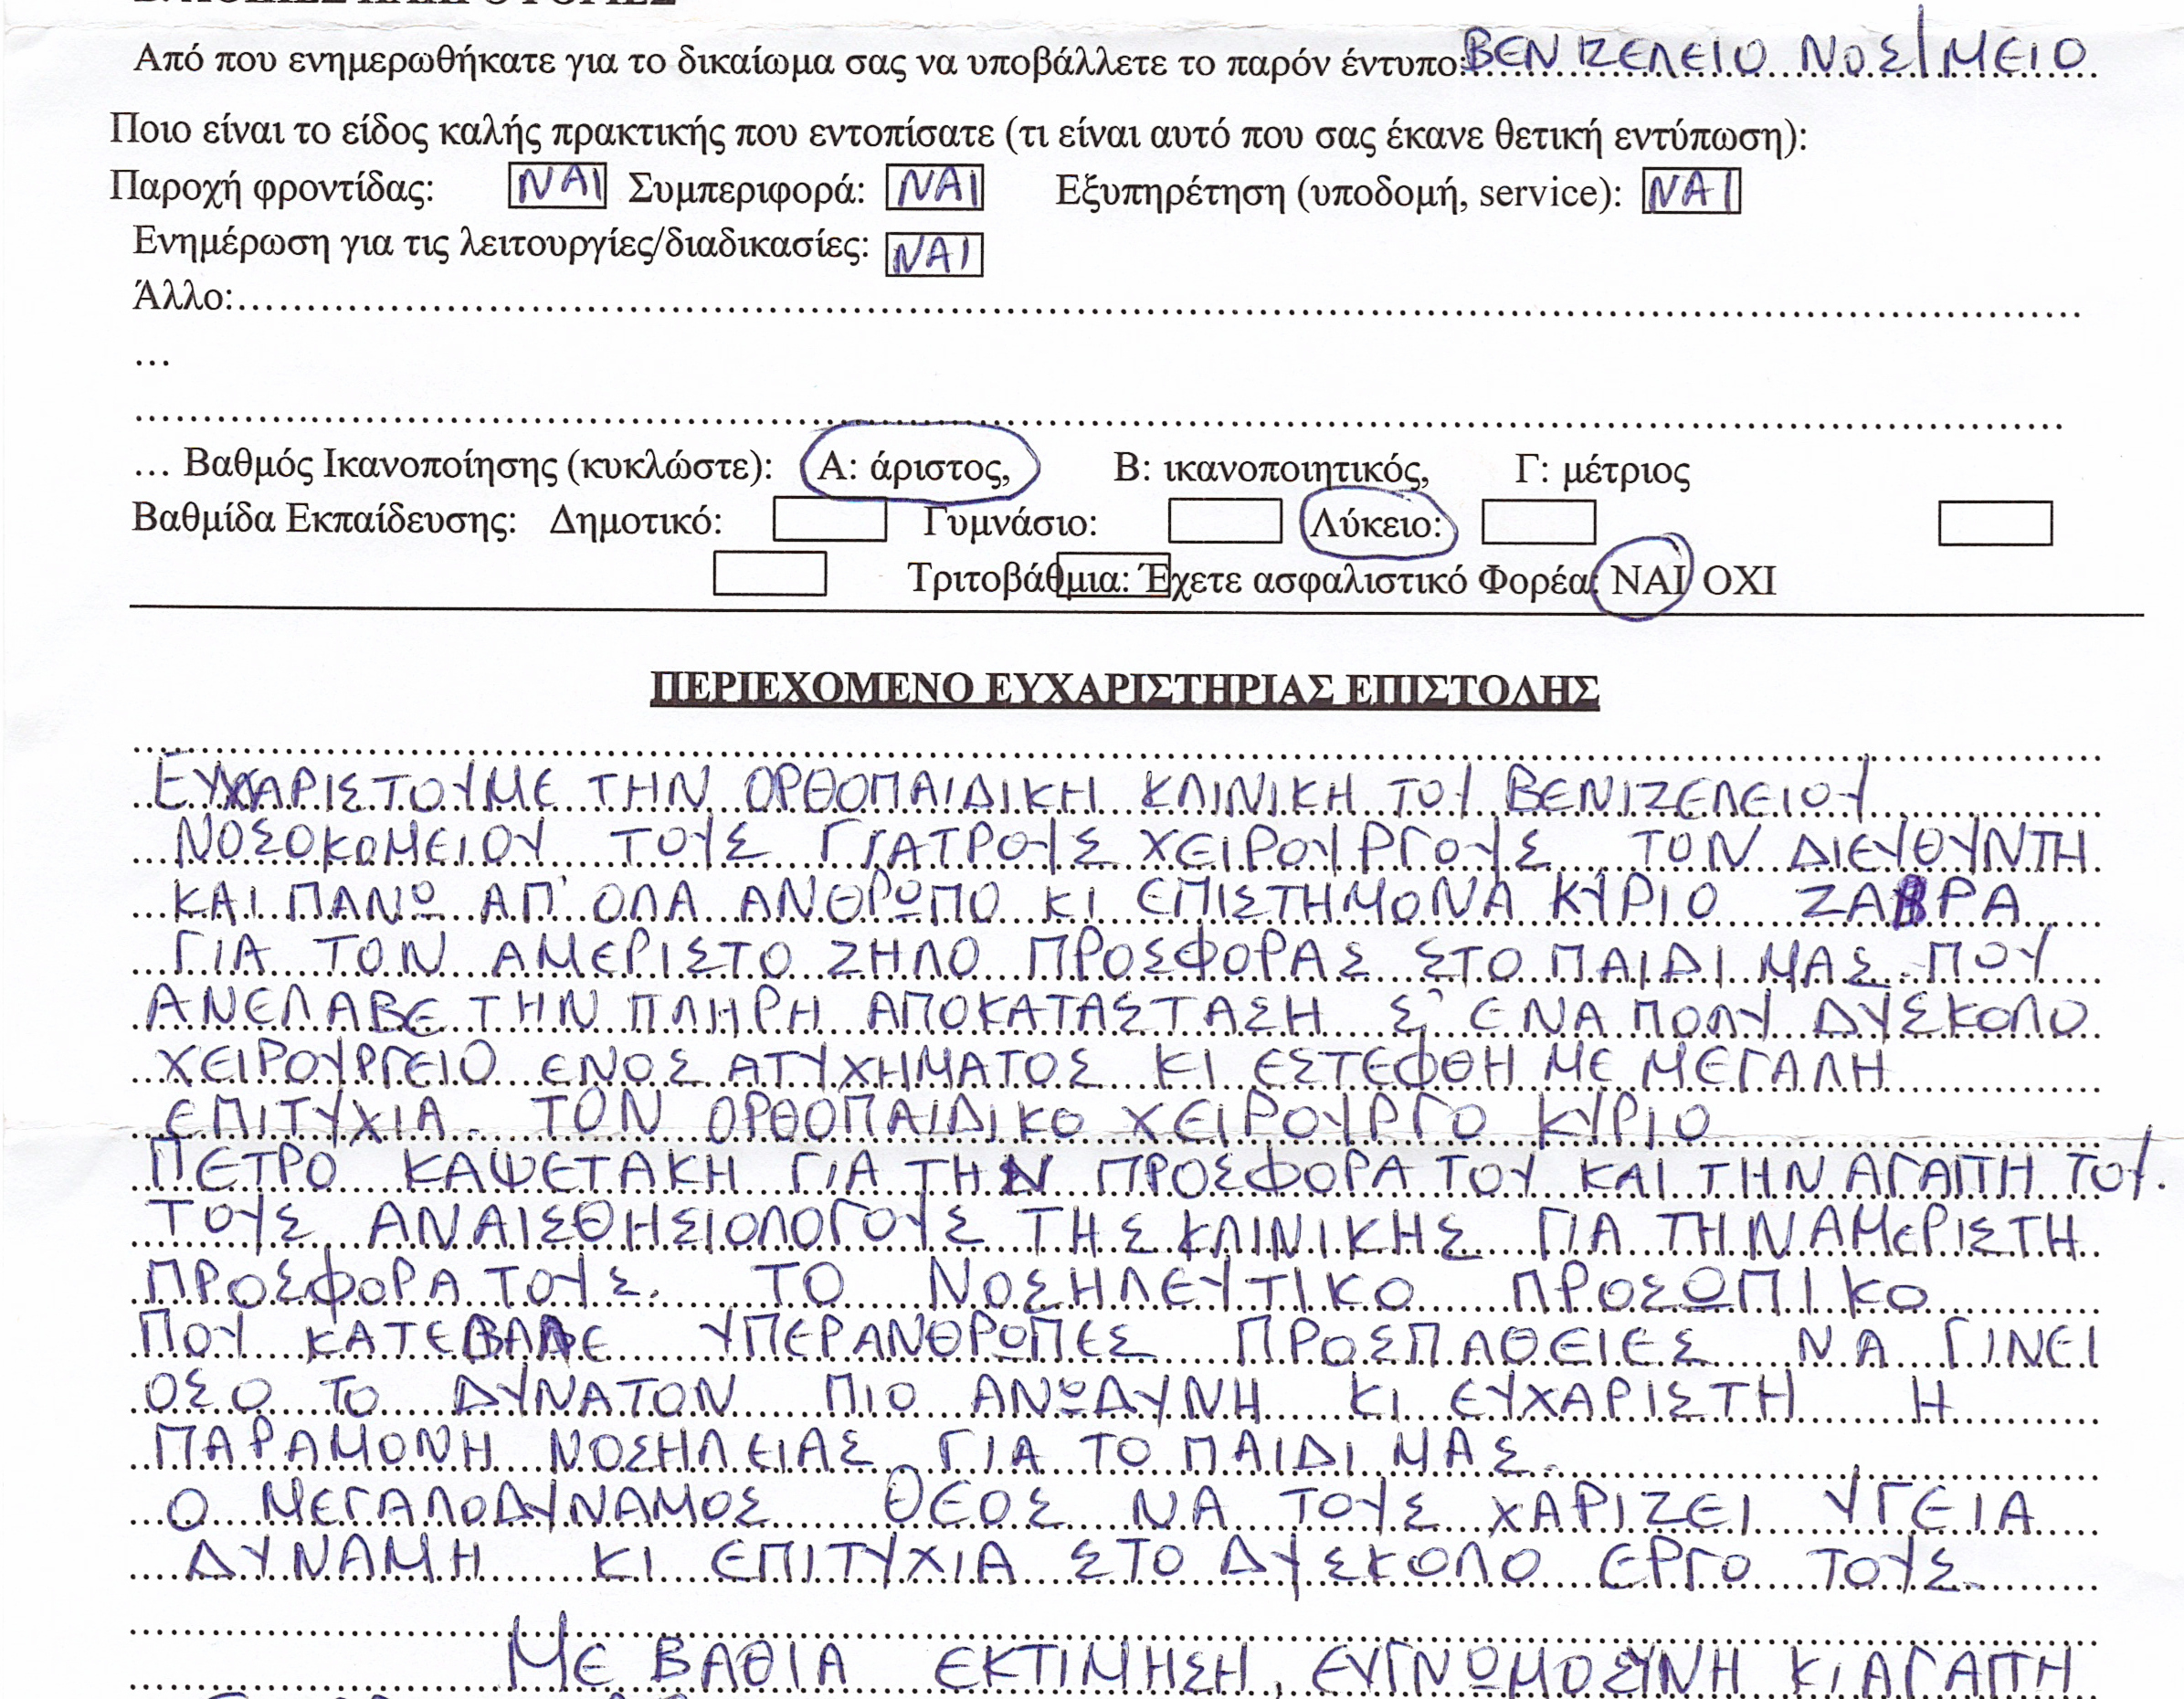 Από που ενημερωθήκατε για το δικαίωμα σας να υποβάλλετε το παρόν έντυπο:ΒΕΝΙΖΕΛΕΙΟ ΝΟΣ/ΜΕΙΟ
Ποιο είναι το είδος καλής πρακτικής που εντοπίσατε (τι είναι αυτό που σας έκανε θετική εντύπωση):
Παροχή φροντίδας: ΝΑΙ Συμπεριφορά: ΝΑΙ Εξυπηρέτηση (υποδομή, service): ΝΑΙ
Ενημέρωση για τις λειτουργίες/διαδικασίες: ΝΑΙ
Άλλο:..........
...
..........
... Βαθμός Ικανοποίησης (κυκλώστε): Α: άριστος, Β: ικανοποιητικός, Γ: μέτριος
Βαθμίδα Εκπαίδευσης: Δημοτικό: Γυμνάσιο: Λύκειο:
Τριτοβάθμια: Έχετε ασφαλιστικό Φορέα: ΝΑΙ ΟΧΙ
ΠΕΡΙΕΧΟΜΕΝΟ ΕΥΧΑΡΙΣΤΗΡΙΑΣ ΕΠΙΣΤΟΛΗΣ
ΕΥΧΑΡΙΣΤΟΥΜΕ ΤΗΝ ΟΡΘΟΠΑΙΔΙΚΗ ΚΛΙΝΙΚΗ ΤΟΥ ΒΕΝΙΖΕΛΕΙΟΥ
ΝΟΣΟΚΟΜΕΙΟΥ ΤΟΥΣ ΓΙΑΤΡΟΥΣ ΧΕΙΡΟΥΡΓΟΥΣ ΤΟΝ ΔΙΕΥΘΥΝΤΗ
ΚΑΙ ΠΑΝΩ ΑΠ' ΟΛΑ ΑΝΘΡΩΠΟ ΚΙ ΕΠΙΣΤΗΜΟΝΑ ΚΥΡΙΟ ΖΑΒΡΑ
ΓΙΑ ΤΟΝ ΑΜΕΡΙΣΤΟ ΖΗΛΟ ΠΡΟΣΦΟΡΑΣ ΣΤΟ ΠΑΙΔΙ ΜΑΣ ΠΟΥ
ΑΝΕΛΑΒΕ ΤΗΝ ΠΛΗΡΗ ΑΠΟΚΑΤΑΣΤΑΣΗ Σ' ΕΝΑ ΠΟΛΥ ΔΥΣΚΟΛΟ
ΧΕΙΡΟΥΡΓΕΙΟ ΕΝΟΣ ΑΤΥΧΗΜΑΤΟΣ ΚΙ ΕΣΤΕΦΘΗ ΜΕ ΜΕΓΑΛΗ
ΕΠΙΤΥΧΙΑ. ΤΟΝ ΟΡΘΟΠΑΙΔΙΚΟ ΧΕΙΡΟΥΡΓΟ ΚΥΡΙΟ
ΠΕΤΡΟ ΚΑΨΕΤΑΚΗ ΓΙΑ ΤΗΝ ΠΡΟΣΦΟΡΑ ΤΟΥ ΚΑΙ ΤΗΝ ΑΓΑΠΗ ΤΟΥ.
ΤΟΥΣ ΑΝΑΙΣΘΗΣΙΟΛΟΓΟΥΣ ΤΗΣ ΚΛΙΝΙΚΗΣ ΓΙΑ ΤΗΝ ΑΜΕΡΙΣΤΗ
ΠΡΟΣΦΟΡΑ ΤΟΥΣ. ΤΟ ΝΟΣΗΛΕΥΤΙΚΟ ΠΡΟΣΩΠΙΚΟ
ΠΟΥ ΚΑΤΕΒΑΛΕ ΥΠΕΡΑΝΘΡΩΠΕΣ ΠΡΟΣΠΑΘΕΙΕΣ ΝΑ ΓΙΝΕΙ
ΟΣΟ ΤΟ ΔΥΝΑΤΟΝ ΠΙΟ ΑΝΩΔΥΝΗ ΚΙ ΕΥΧΑΡΙΣΤΗ Η
ΠΑΡΑΜΟΝΗ ΝΟΣΗΛΕΙΑΣ ΓΙΑ ΤΟ ΠΑΙΔΙ ΜΑΣ.
Ο ΜΕΓΑΛΟΔΥΝΑΜΟΣ ΘΕΟΣ ΝΑ ΤΟΥΣ ΧΑΡΙΖΕΙ ΥΓΕΙΑ
ΔΥΝΑΜΗ ΚΙ ΕΠΙΤΥΧΙΑ ΣΤΟ ΔΥΣΚΟΛΟ ΕΡΓΟ ΤΟΥΣ.
ΜΕ ΒΑΘΙΑ ΕΚΤΙΜΗΣΗ, ΕΥΓΝΩΜΟΣΥΝΗ ΚΙ ΑΓΑΠΗ